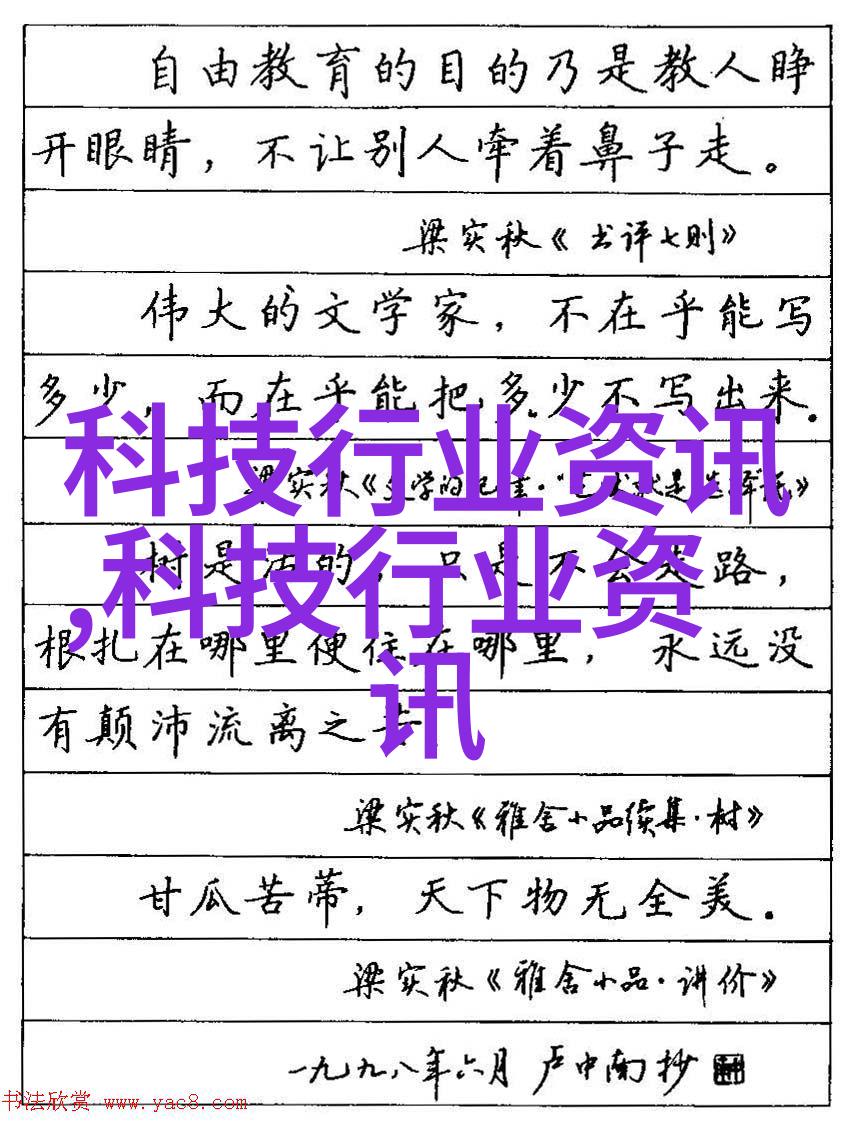 自由教育的目的乃是教人睁
开眼睛，不让别人牵着鼻子走。
梁实秋《书评七则》
伟大的文学家，不在乎能写
多少，而在乎能把多少不写出来.
科技行业资讯
梁实秋《文学的
,科技行业资
树是活的，只是不会走路，
根扎在哪里便住在哪里，永远没
讯
有颠沛流离之苦
梁实秋《雅舍小品续集·树》
甘瓜苦蒂，天下物无全美.
梁实秋《雅舍小品·讲价》
一九九八年六月 卢中南抄
书法欣赏 www.yac8.com